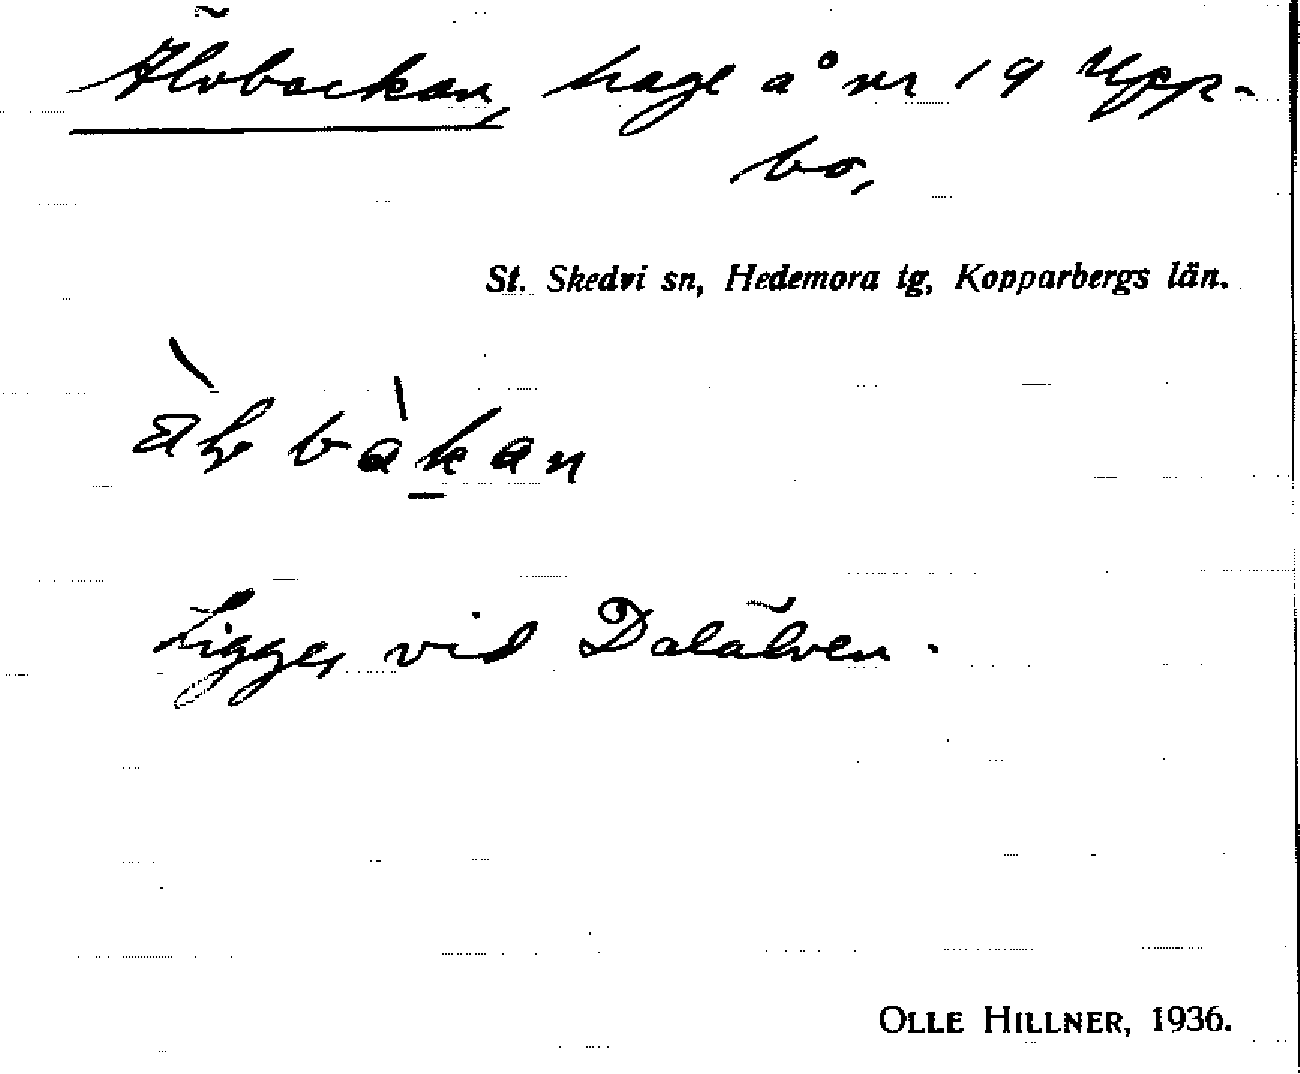 Älvbackan, hage å nr 19 Upp-
bo,
St. Skedvi sn, Hedemora tg, Kopparbergs län.
bàkan
Ligger vid Dalälven.
OLLE HILLNER, 1936.